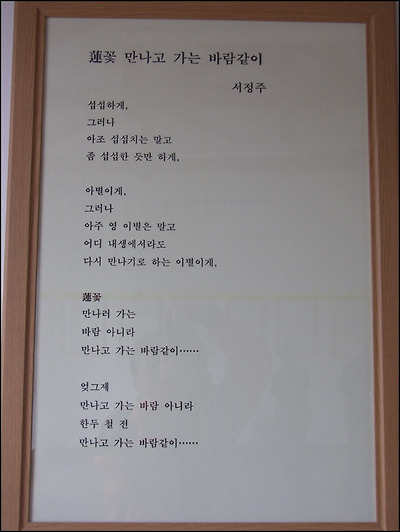 蓮꽃 만나고 가는 바람같이
서정주
섭섭하게,
그러나
아조 섭섭치는 말고
좀 섭섭한 듯만 하게,
아별이게,
그러나
아주 영 이별은 말고
어디 내생에서라도
다시 만나기로 하는 이별이게,
蓮꽃
만나러 가는
바람 아니라
만나고 가는 바람같이……
엊그제
만나고 가는 바람 아니라
한두 철 전
만나고 가는 바람같이……